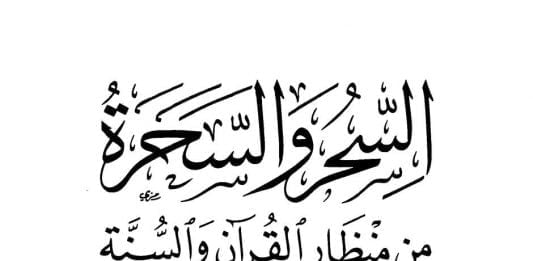 السِّحْرُ وَالسَّحَرَةُ
مِن مِنْظَارِ ٱلْقُرْآنِ وَٱلسُّنَّةِ